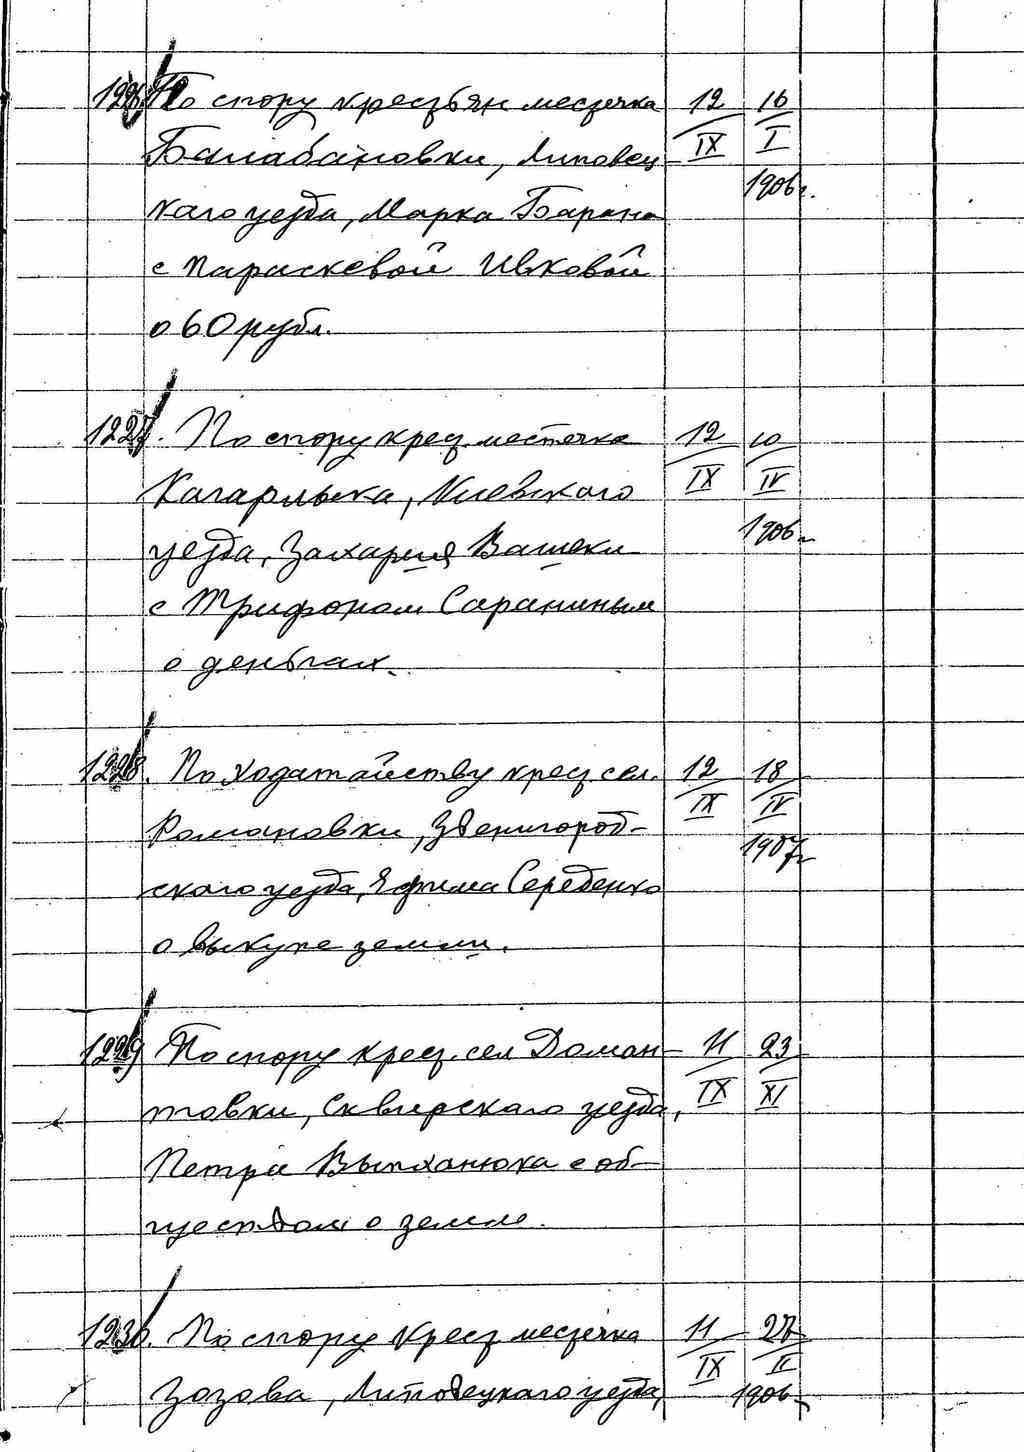 1226 По спору крестьян местечка 12 16
Балабановки, Липовец- IX I
каго уезда, Марка Барана 1906 г.
с Параскевой Ивковой
о 60 рубл.
1227. По спору крест. местечка 12 10
Кагарлыка, Киевского IX IV
уезда, Захария Вашеки 1906 г.
с Трифоном Сараниным
о деньгах.
1228. По ходатайству крест. сел. 12 18
Романовки, Звенигород- IX IV
ского уезда, Ефима Середенко 1907 г.
о выкупе земли.
1229 По спору крест. сел Доман- 11 23
товки, Сквирскаго уезда, IX XI
Петра с об-
ществом о земле.
1230. По спору крест. местечка 11 27
Зозова, Липовецкаго уезда, IX II
1906